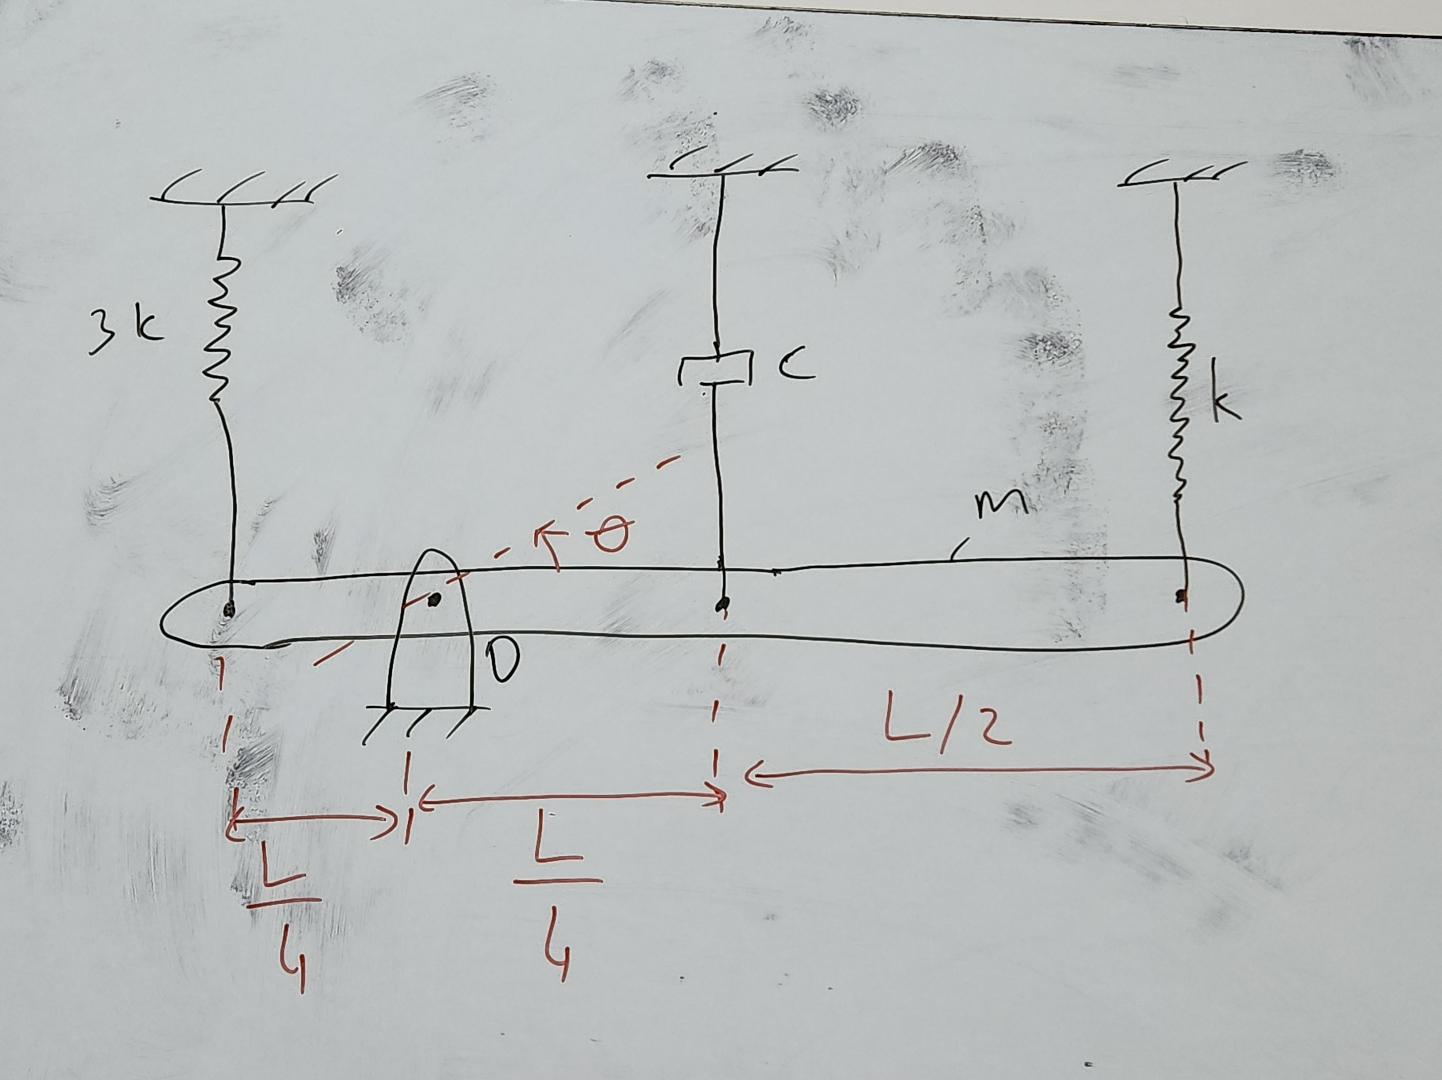 3k
c
k
m
θ
O
L/2
L
4
L
4